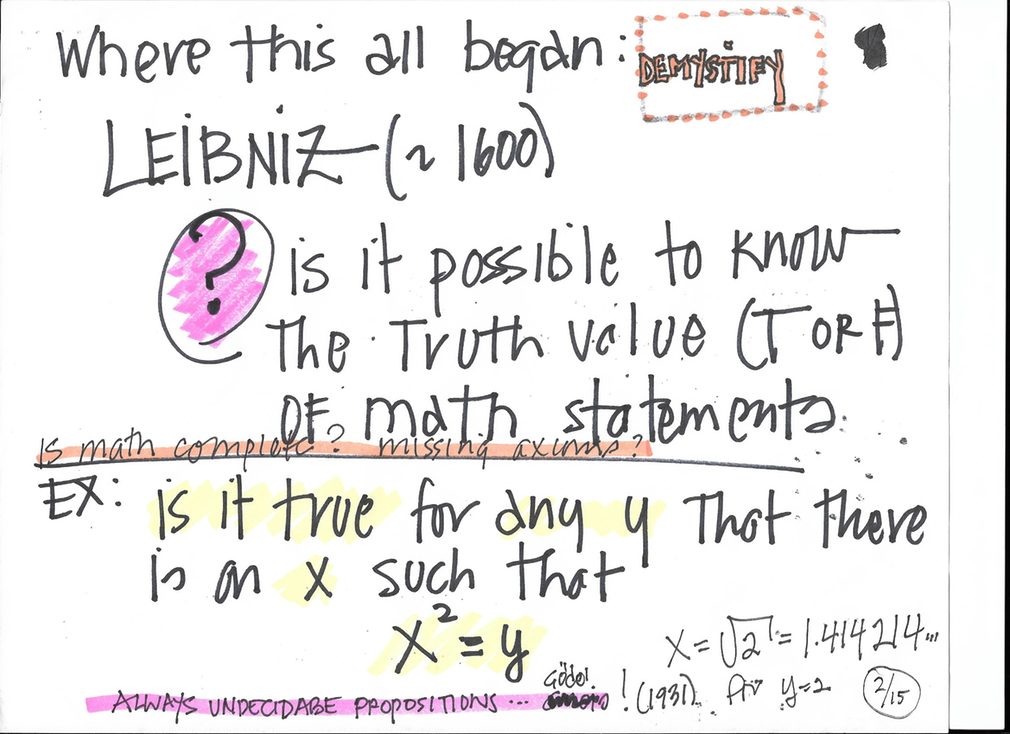 Where this all began:
DEMYSTIFY
LEIBNIZ (~ 1600)
? is it possible to know
the Truth value (T OR F)
OF math statements.
is math complete? missing axioms?
EX: is it true for any y that there
is an x such that
x² = y
x = √2 = 1.414214...
ALWAYS UNDECIDABE PROPOSITIONS ... Gödel! (1931)
for y=2
2/15